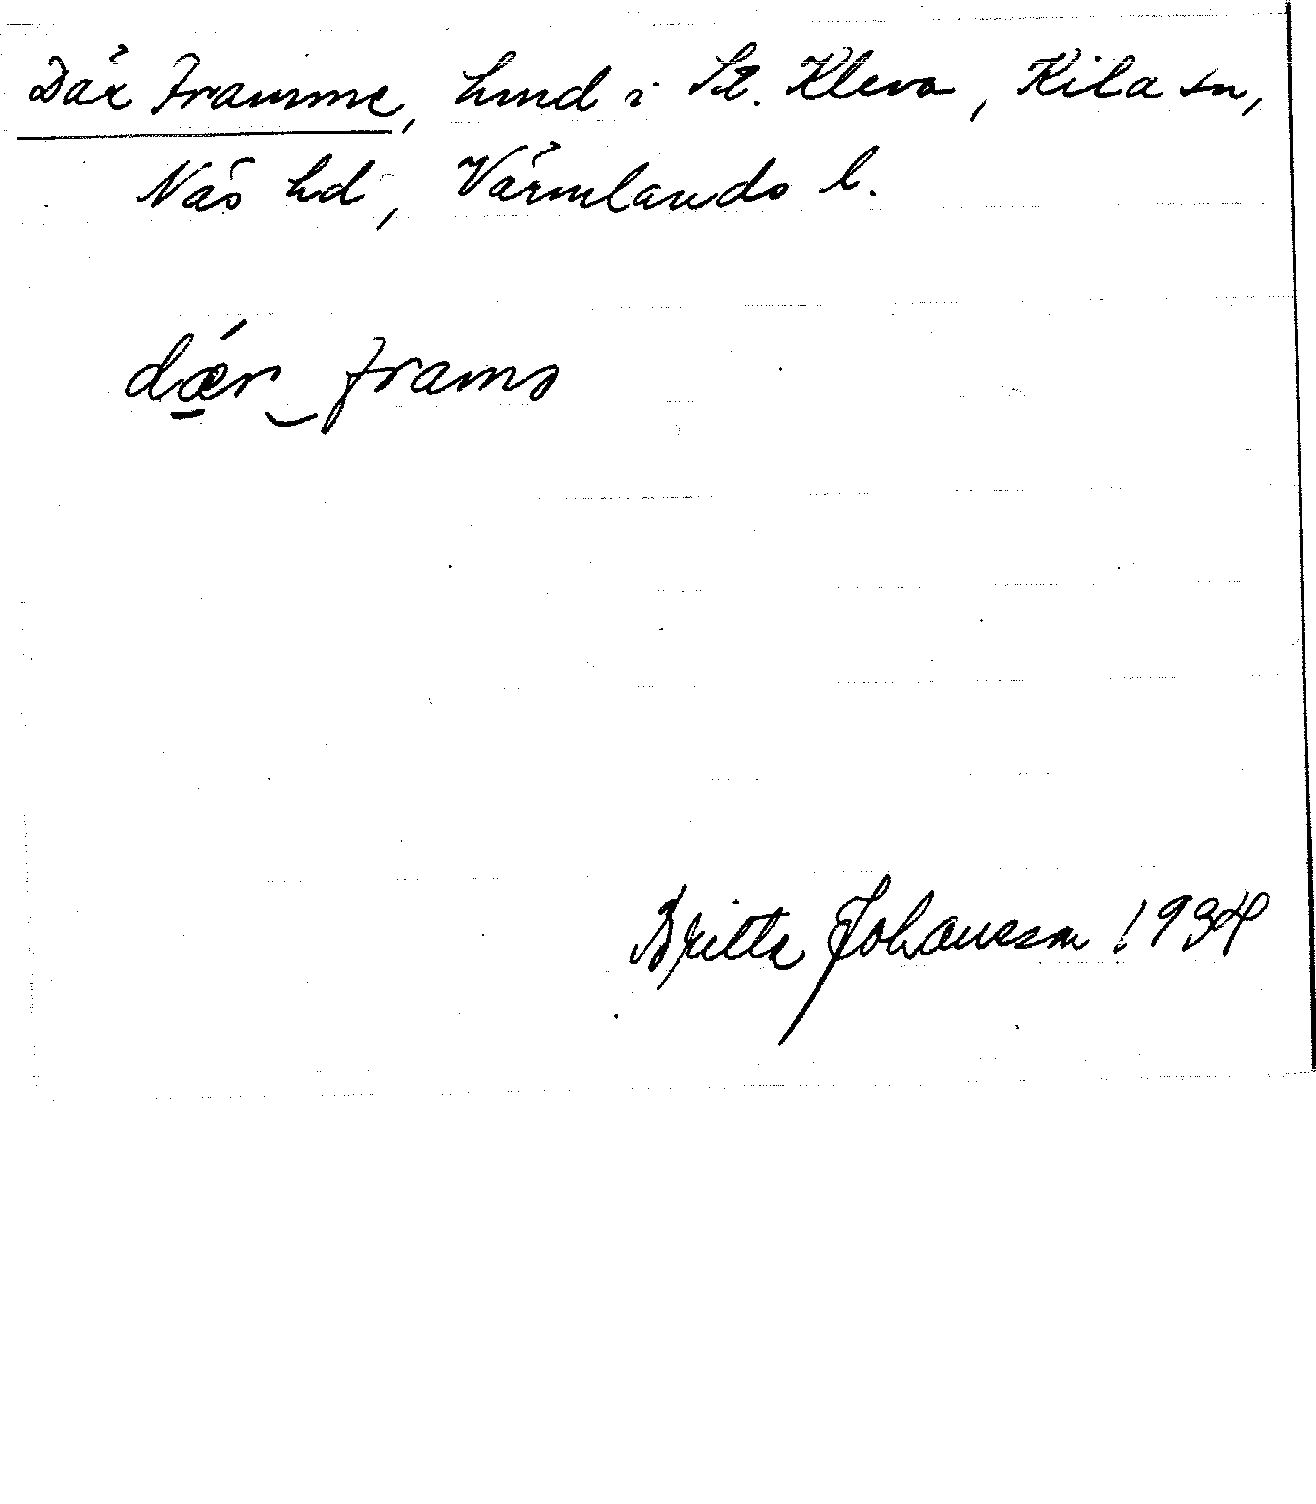 Där Framme, hmd i St. Kleva, Kila sn,
Näs hd, Värmlands l.
dǽr‿frama
Britta Johansson 1934